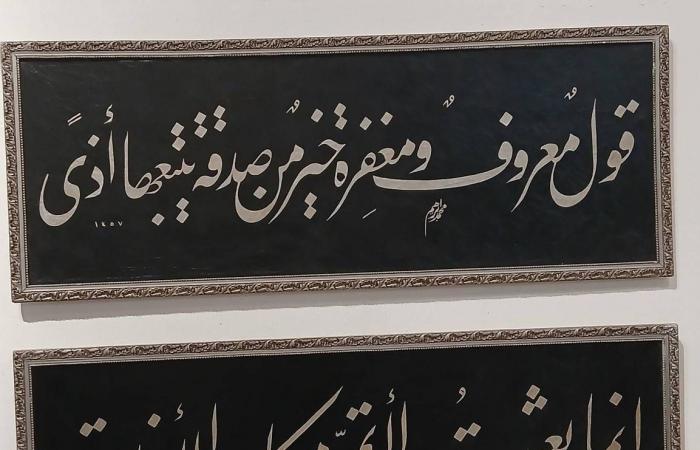 قولٌ معروفٌ ومغفرة خيرٌ من صدقة يتبعها أذىً
محمد إبراهيم
١٤٥٧
إنما بعثتُ لأتمّم مكارم الأخلاق